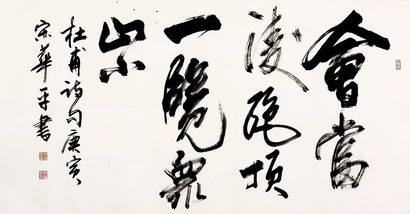 會當
淩絕頂
一覽眾
山小
杜甫詩句庚寅
宋華平書